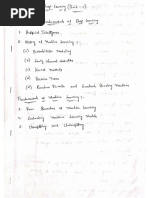 Deep Learning (Unit-1)
Fundamentals of Deep Learning
1. Artificial Intelligence
2. History of Machine Learning:
(i) Probabilistic Modeling
(ii) Early Neural Networks
(iii) Kernel Methods
(iv) Decision Trees
(v) Random Forests and Gradient Boosting Machines
Fundamentals of Machine Learning:
1. Four Branches of Machine Learning
2. Evaluating Machine Learning Models
3. Overfitting and Underfitting